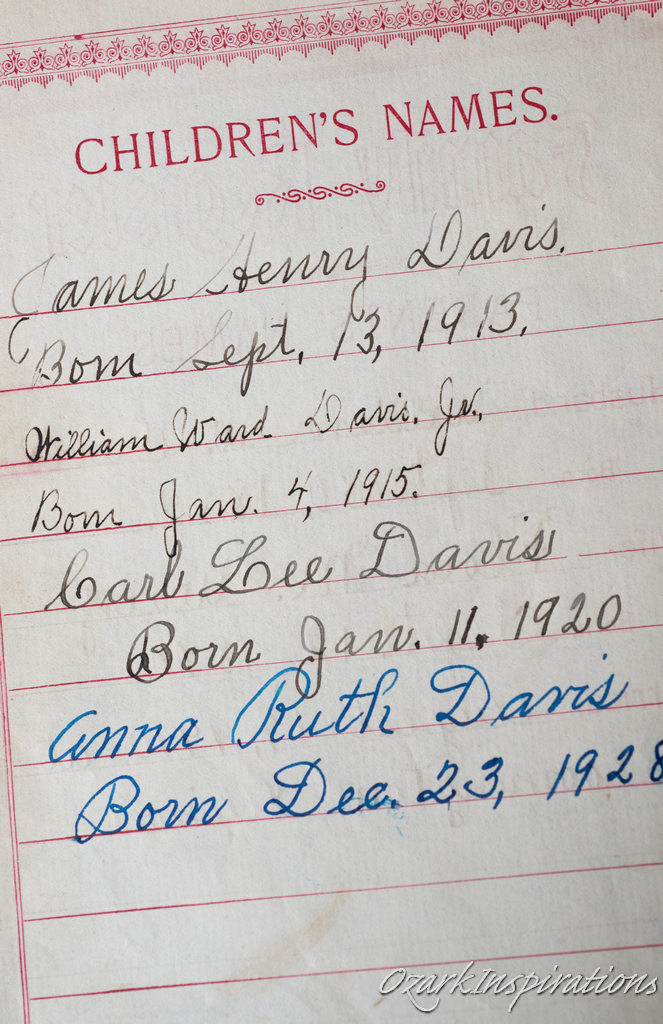 CHILDREN'S NAMES.
James Henry Davis.
Born Sept. 13, 1913.
William Ward Davis. Jr.,
Born Jan. 4, 1915.
Carl Lee Davis
Born Jan. 11. 1920
Anna Ruth Davis
Born Dec. 23, 1928
OzarkInspirations